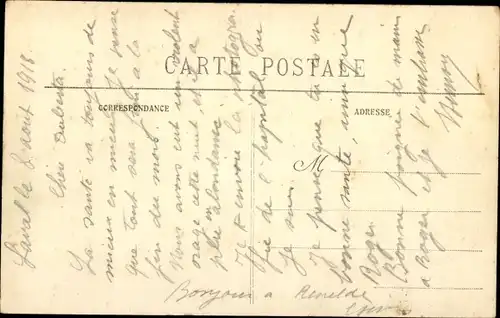 CARTE POSTALE
CORRESPONDANCE
ADRESSE
M
le 2 aout 1918
Chère
La santé va toujours de
mieux en mieux. Je pense
que tout sera fini à la
fin du mois.
Nous avons eut un violent
orage cette nuit, et la
pluie en abondance
Je t'envoie la photogra
fie de l'hopital ou
Je suis.
Je pense que tu es en
bonne santé, ainsi que
Roger.
Bonne poignée de main
a Roger et je t'embrasse
Bonjour a